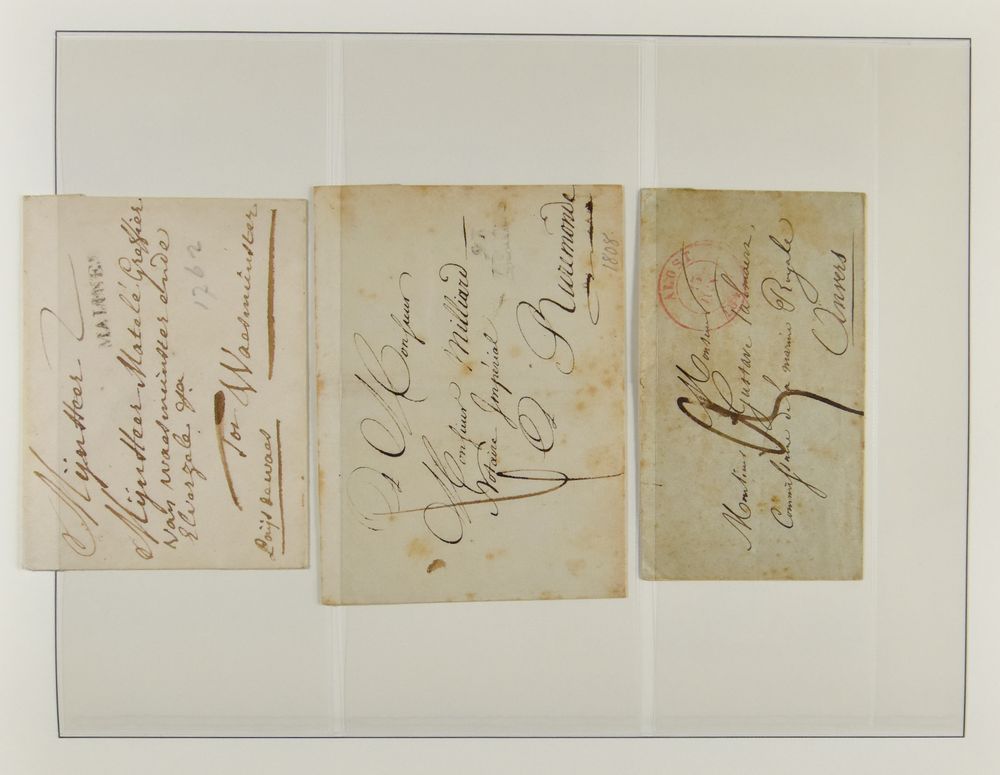 Mijnheer
MALINES
Mijnheer Matelé Greffier
van waesmunster ende
Elverzele &a
1762
Tot Waesmunster
Paijs de waes
Monsieur
Monsieur Milliard
Notaire Impérial
à Ruremonde
1808
ALOST
Monsieur
Monsieur Gustave
Commissaire de la marine Royale
Anvers